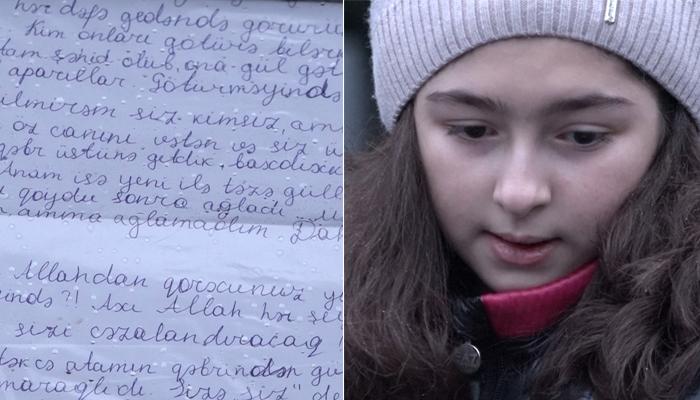 hər dəfə gedəndə görürü
Kim onları götürə bilər
tam şəhid olub ona gül gət
aparıllar. Götürməyində
ilmirəm siz kimsiz, am
öz canını verən və siz ü
qəbr üstünə getdik, baxdıq
Anam isə yeni ilə təzə güll
qoydu sonra ağladı
amma ağlamadım. Da
Allahdan qorxunuz y
inda ?! Axı Allah hər şe
sizi cəzalandıracaq !
təkcə atamın qəbrindən gü
maraqlıdı. Sizə "siz" de